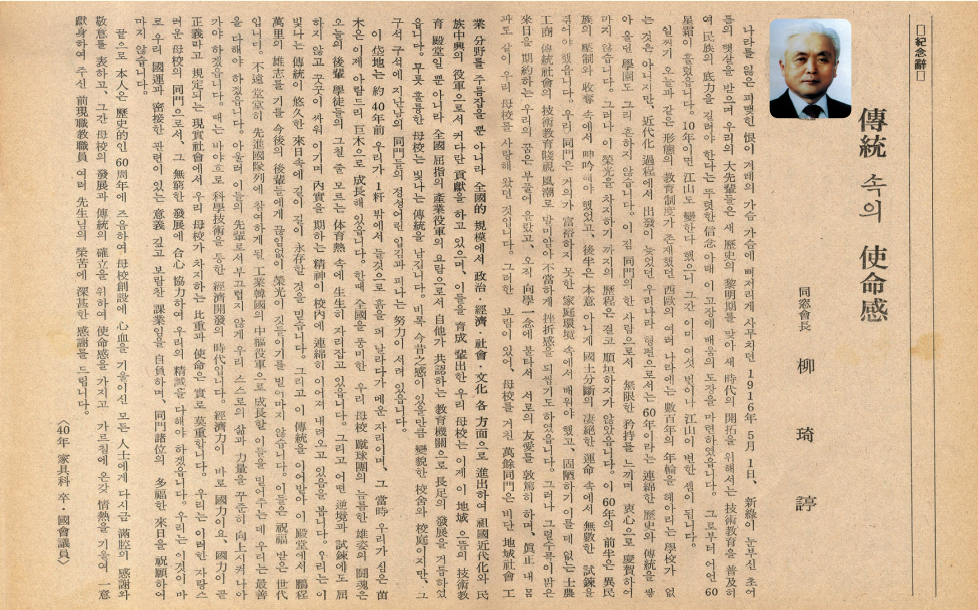 □紀念辭□
傳統 속의 使命感
同窓會長 柳琦諄
나라를 잃은 피맺힌 恨이 겨레의 가슴 가슴에 뼈저리게 사무치던 1916年 5月 1日, 新綠이 눈부신 초여
름의 햇살을 받으며 우리의 大先輩들은 새 歷史의 黎明期를 맞아 새 時代의 開拓을 위해서는 技術敎育을 普及하
여 民族의 底力을 길러야 한다는 뚜렷한 信念 아래 이 고장에 배움의 도장을 마련하였읍니다. 그로부터 어언 60
星霜이 흘렀읍니다. 10年이면 江山도 變한다 했으니 그간 이미 여섯 번이나 江山이 변한 셈이 됩니다.
일찌기 오늘과 같은 形態의 敎育制度가 존재했던 西歐의 여러 나라에는 數百年의 年輪을 헤아리는 學校가 없
는 것은 아니지만, 近代化 過程에서 出發이 늦었던 우리나라 형편으로서는 60年이라는 連綿한 歷史와 傳統을 쌓
아 올린 學園도 그리 흔하지 않습니다. 이 점 同門의 한 사람으로서 無限한 矜持를 느끼며 衷心으로 慶賀하여
마지 않습니다. 그러나 이 榮光을 차지하기 까지의 歷程은 결코 順坦하지가 않았읍니다. 이 60年의 前半은 異民
族의 壓制와 收奪 속에서 呻吟해야 했었고, 後半은 本意 아니게 國土分斷의 凄絶한 運命 속에서 無數한 試鍊을
겪어야 했읍니다. 우리 同門은 거의가 富裕하지 못한 家庭環境 속에서 배워야 했고, 固陋하기 이를데 없는 士農
工商 傳統社會의 技術敎育賤視風潮로 말미암아 不當하게 挫折感을 되씹기도 하였읍니다. 그러나 그럴수록이 밝은
來日을 期約하는 우리의 꿈은 부풀어 올랐고, 오직 向學一念에 불타서 서로의 友愛를 敦篤히 하며, 眞正 내 몸
과도 같이 우리 母校를 사랑해 왔던 것입니다. 그러한 보람이 있어, 母校를 거친 萬餘同門은 비단 地域社會 工
業 分野를 주름잡을 뿐 아니라 全國的 規模에서 政治·經濟·社會·文化 各 方面으로 進出하여 祖國近代化와 民
族中興의 役軍으로서 커다란 貢獻을 하고 있으며, 이들을 育成 輩出한 우리 母校는 이제 이 地域 으뜸의 技術敎
育 殿堂일 뿐 아니라 全國 屈指의 産業役軍의 요람으로서 自他가 共認하는 敎育機關으로 長足의 發展을 거듭하였
읍니다. 무릇 훌륭한 母校는 빛나는 傳統을 남깁니다. 비록 今昔之感이 있을만큼 變貌한 校舍와 校庭이지만, 그
구석 구석에 지난날의 同門들의 정성어린 입김과 피나는 努力이 서려 있읍니다.
이 垈地는 約 40年前 우리가 1秆 밖에서 들것으로 흙을 퍼 날라다가 메운 자리이며, 그 當時 우리가 심은 苗
木은 이제 아람드리 巨木으로 成長해 있읍니다. 한때 全國을 풍미한 우리 母校 蹴球團의 늠름한 雄姿의 鬪魂은
오늘의 後輩 學徒들의 그칠 줄 모르는 体育熱 속에 生生히 자리잡고 있읍니다. 그리고 어떤 逆境과 試鍊에도 屈
하지 않고 꿋꿋이 싸워 이기며 內實을 期하는 精神이 校內에 連綿히 이어져 내려오고 있음을 봅니다. 우리는 이
빛나는 傳統이 悠久한 來日속에 길이 永存할 것을 믿습니다. 그리고 이 傳統을 이어받아 이 殿堂에서 鵬程
萬里의 雄志를 기를 今後의 後輩들에게 끊임없이 榮光이 깃들이기를 빌어마지 않습니다. 이들은 祝福 받은 世代
입니다. 不遠 堂堂히 先進國隊列에 참여하게 될 工業韓國의 中樞役軍으로 成長할 이들을 밀어주는 데 우리는 最善
을 다해야 하겠읍니다. 아울러 이들의 先輩로서 부끄럽지 않게 우리 스스로의 삶과 力量을 꾸준히 向上시켜 나아
가야 하겠읍니다. 때는 바야흐로 科學技術을 통한 經濟開發의 時代입니다. 經濟力이 바로 國力이요, 國力이 곧
正義라고 規定되는 現實社會에서 우리 母校가 차지하는 比重과 使命은 實로 莫重합니다. 우리는 이러한 자랑스
러운 母校의 同門으로서, 그 無窮한 發展에 合心 協力하여 우리의 精誠을 다해야 하겠읍니다. 우리는 이것이 바
로 우리 國運과 密接한 관련이 있는 意義 깊고 보람찬 課業임을 自負하며, 同門諸位의 多福한 來日을 祝願하여
마지 않습니다.
끝으로 本人은 歷史的인 60周年에 즈음하여 母校創設에 心血을 기울이신 모든 人士에게 다시금 滿腔의 感謝와
敬意를 表하고, 그간 母校의 發展과 傳統의 確立을 위하여 使命感을 가지고 가르침에 온갖 情熱을 기울여 一意
獻身하여 주신 前現職敎職員 여러 先生님의 榮苦에 深甚한 感謝를 드립니다.
〈40年 家具科 卒·國會議員〉